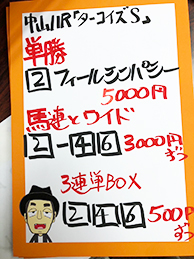 中山11R『ターコイズS』
単勝
2 フィールシンパシー
5000円
馬連とワイド
2-4 6 3000円ずつ
3連単BOX
2 4 6 500円ずつ